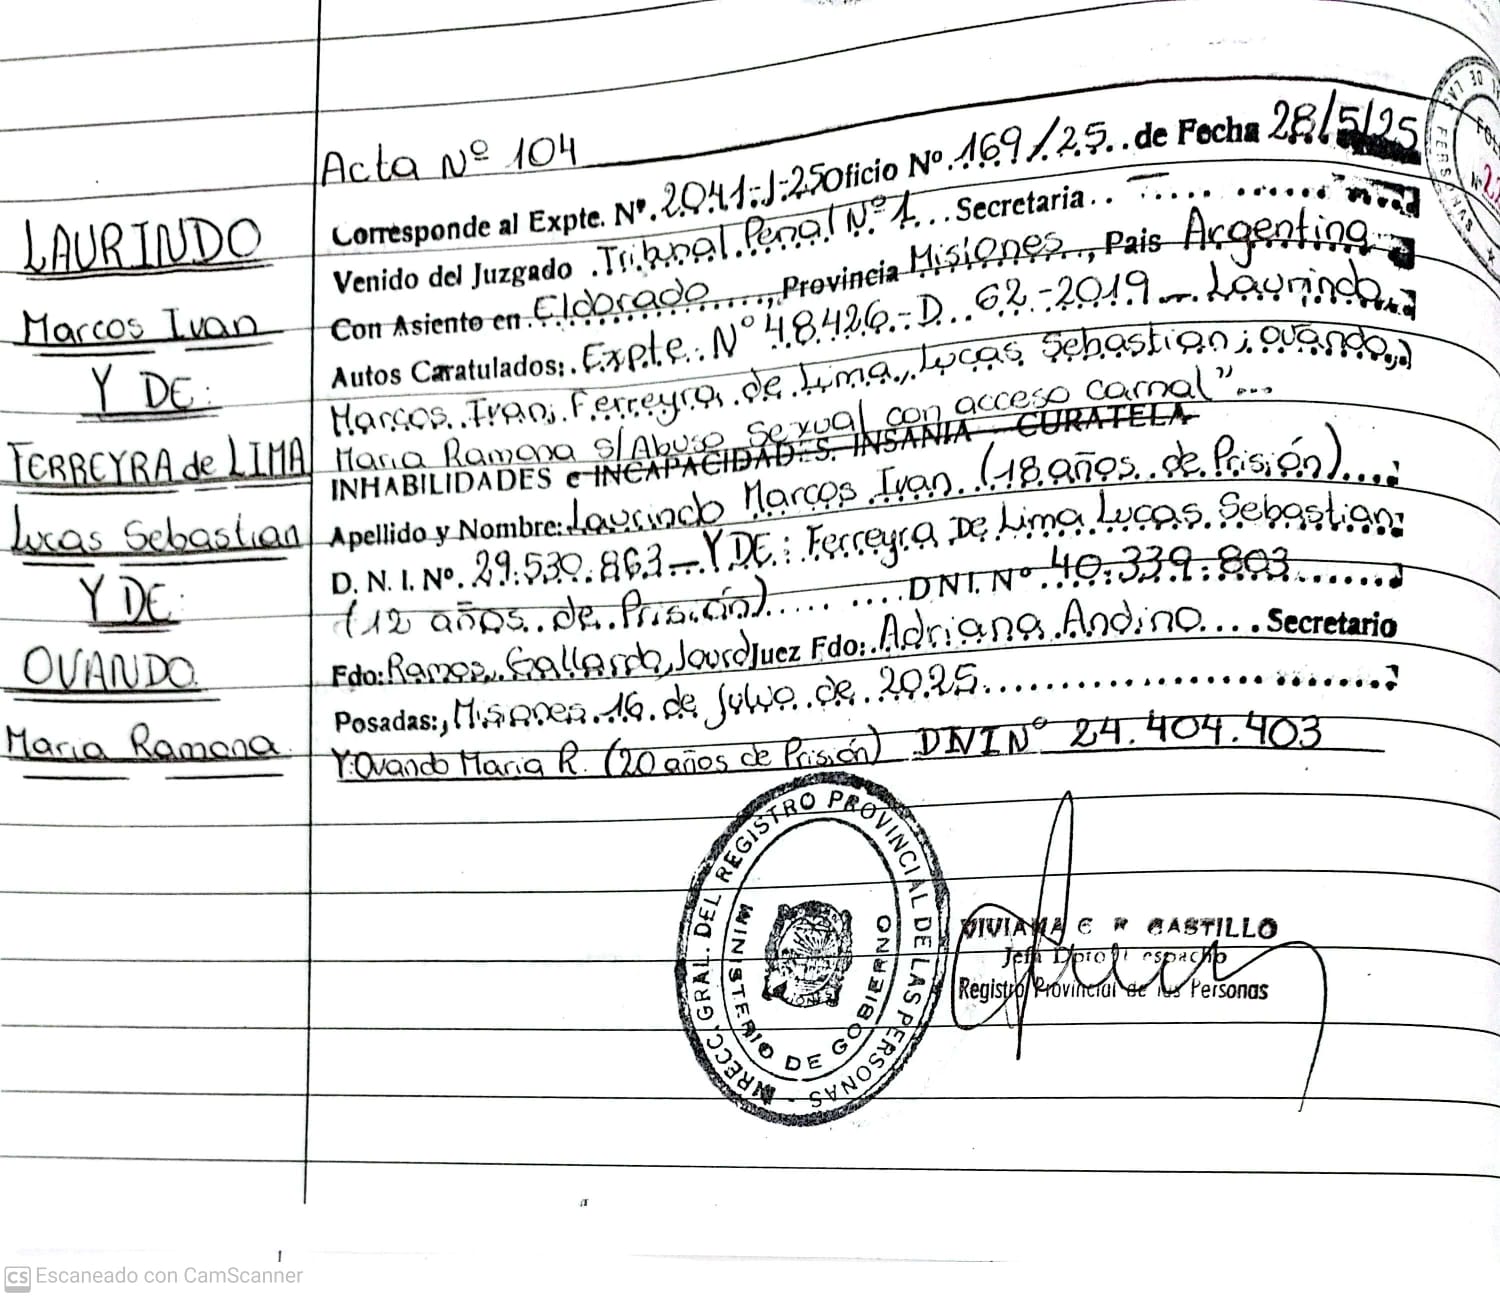 Acta Nº 104
Corresponde al Expte. Nº. 2041-J-25 Oficio Nº. 169/25.. de Fecha 28/5/25
Venido del Juzgado .Tribunal Penal Nº 1... Secretaria..
Con Asiento en Eldorado...., Provincia Misiones., Pais Argentina
Autos Caratulados:. Expte. Nº 48426.-D. 62-2019 - Laurindo
Marcos Ivan; Ferreyra de Lima, Lucas Sebastian; Ovando,
Maria Ramona s/Abuso Sexual con acceso carnal"...
INHABILIDADES e INCAPACIDADES. INSANIA - CURATELA
Apellido y Nombre: Laurindo Marcos Ivan. (18 años de Prisión)....
D. N. I. Nº. 29.530.863 - Y DE: Ferreyra De Lima Lucas Sebastian
(12 años de Prisión)..... ....DNI. Nº 40.339.803
Fdo: Ramos, Gallardo, Jourd Juez Fdo:. Adriana Andino.... Secretario
Posadas:, Misiones. 16. de Julio de 2025
Y: Ovando Maria R. (20 años de Prisión) DNI Nº 24.404.403
LAURINDO
Marcos Ivan
Y DE:
FERREYRA de LIMA
Lucas Sebastian
Y DE:
OVANDO
Maria Ramona
GRAL. DEL REGISTRO PROVINCIAL DE LAS PERSONAS
MINISTERIO DE GOBIERNO
CASTILLO
Registro Provincial de las Personas
CS Escaneado con CamScanner